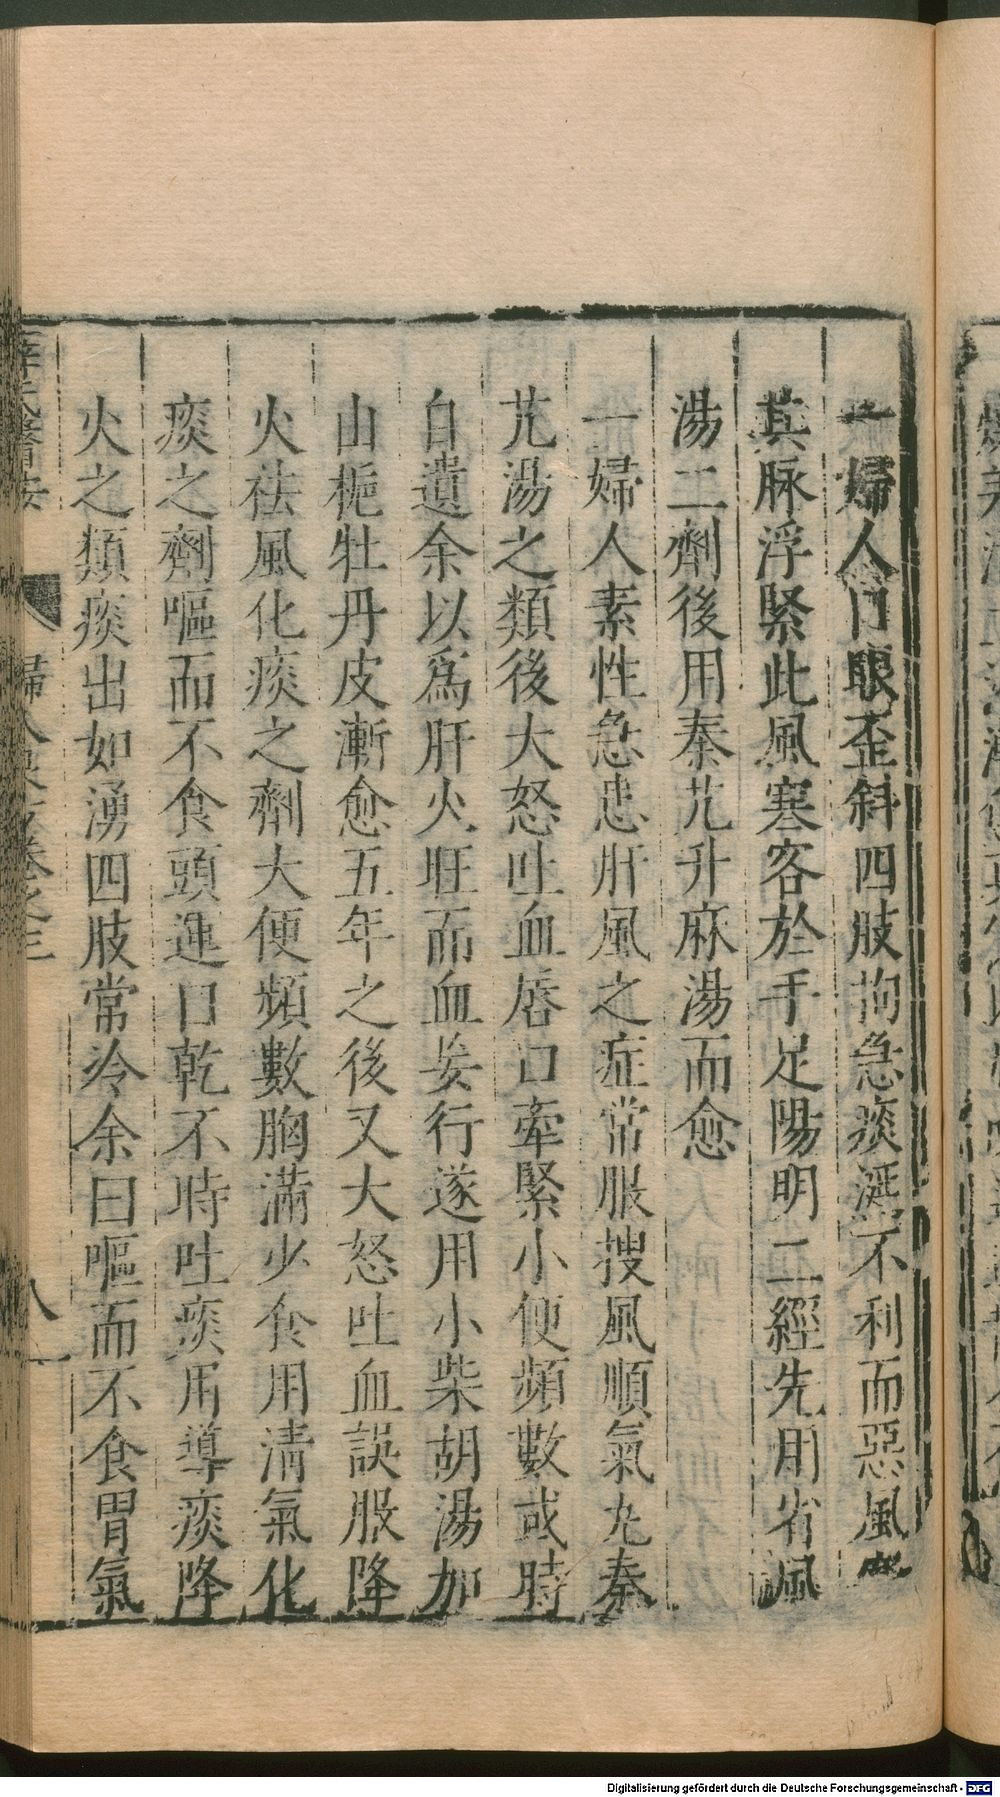 一婦人口眼歪斜四肢拘急痰涎不利而惡風寒
其脉浮緊此風寒客於手足陽明二經先用省風
湯二劑後用秦艽升麻湯而愈
一婦人素性急患肝風之症常服搜風順氣丸秦
艽湯之類後大怒吐血唇口牽緊小便頻數或時
自遺余以爲肝火旺而血妄行遂用小柴胡湯加
山梔牡丹皮漸愈五年之後又大怒吐血誤服降
火祛風化痰之劑大便頻數胸滿少食用清氣化
痰之劑嘔而不食頭運口乾不時吐痰用導痰降
火之類痰出如湧四肢常冷余曰嘔而不食胃氣
薛氏醫按 婦人良方卷之三 八一
Digitalisierung gefördert durch die Deutsche Forschungsgemeinschaft - DFG